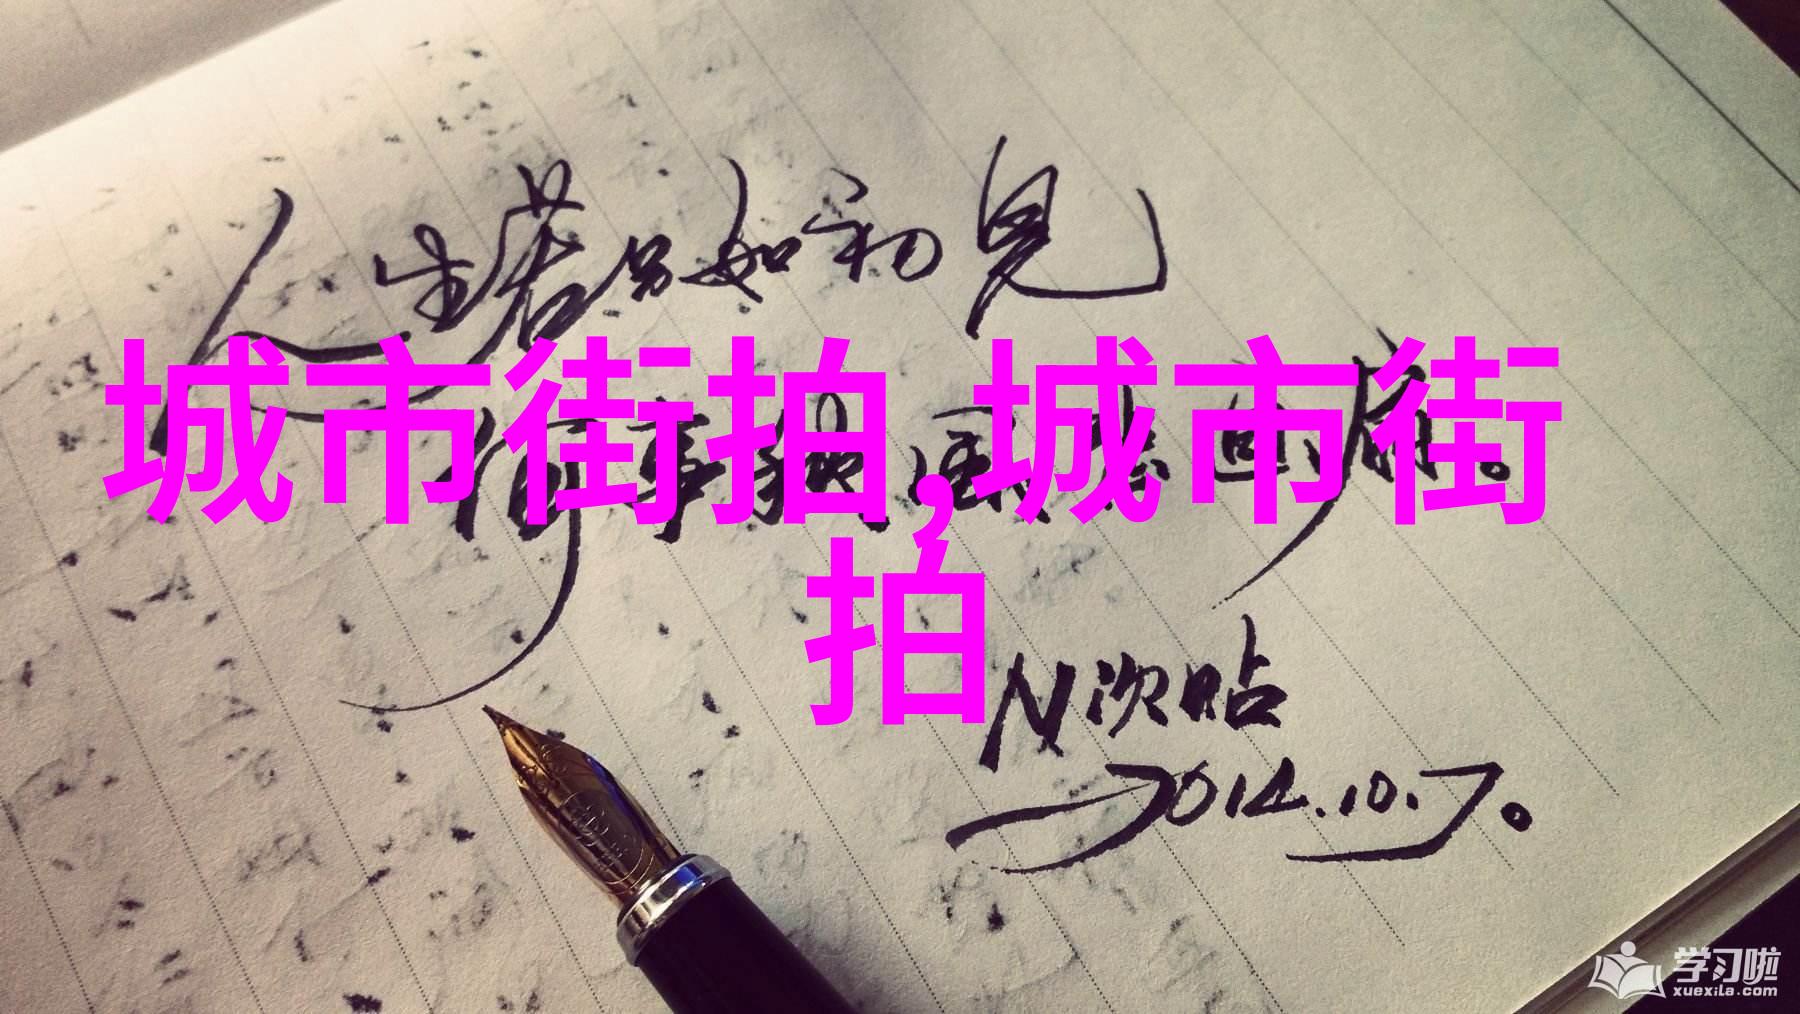 人生若只如初见
何事秋风悲画扇。
城市街拍,城市街
拍
N次贴
2014.10.7。
学习啦
xuexila.com